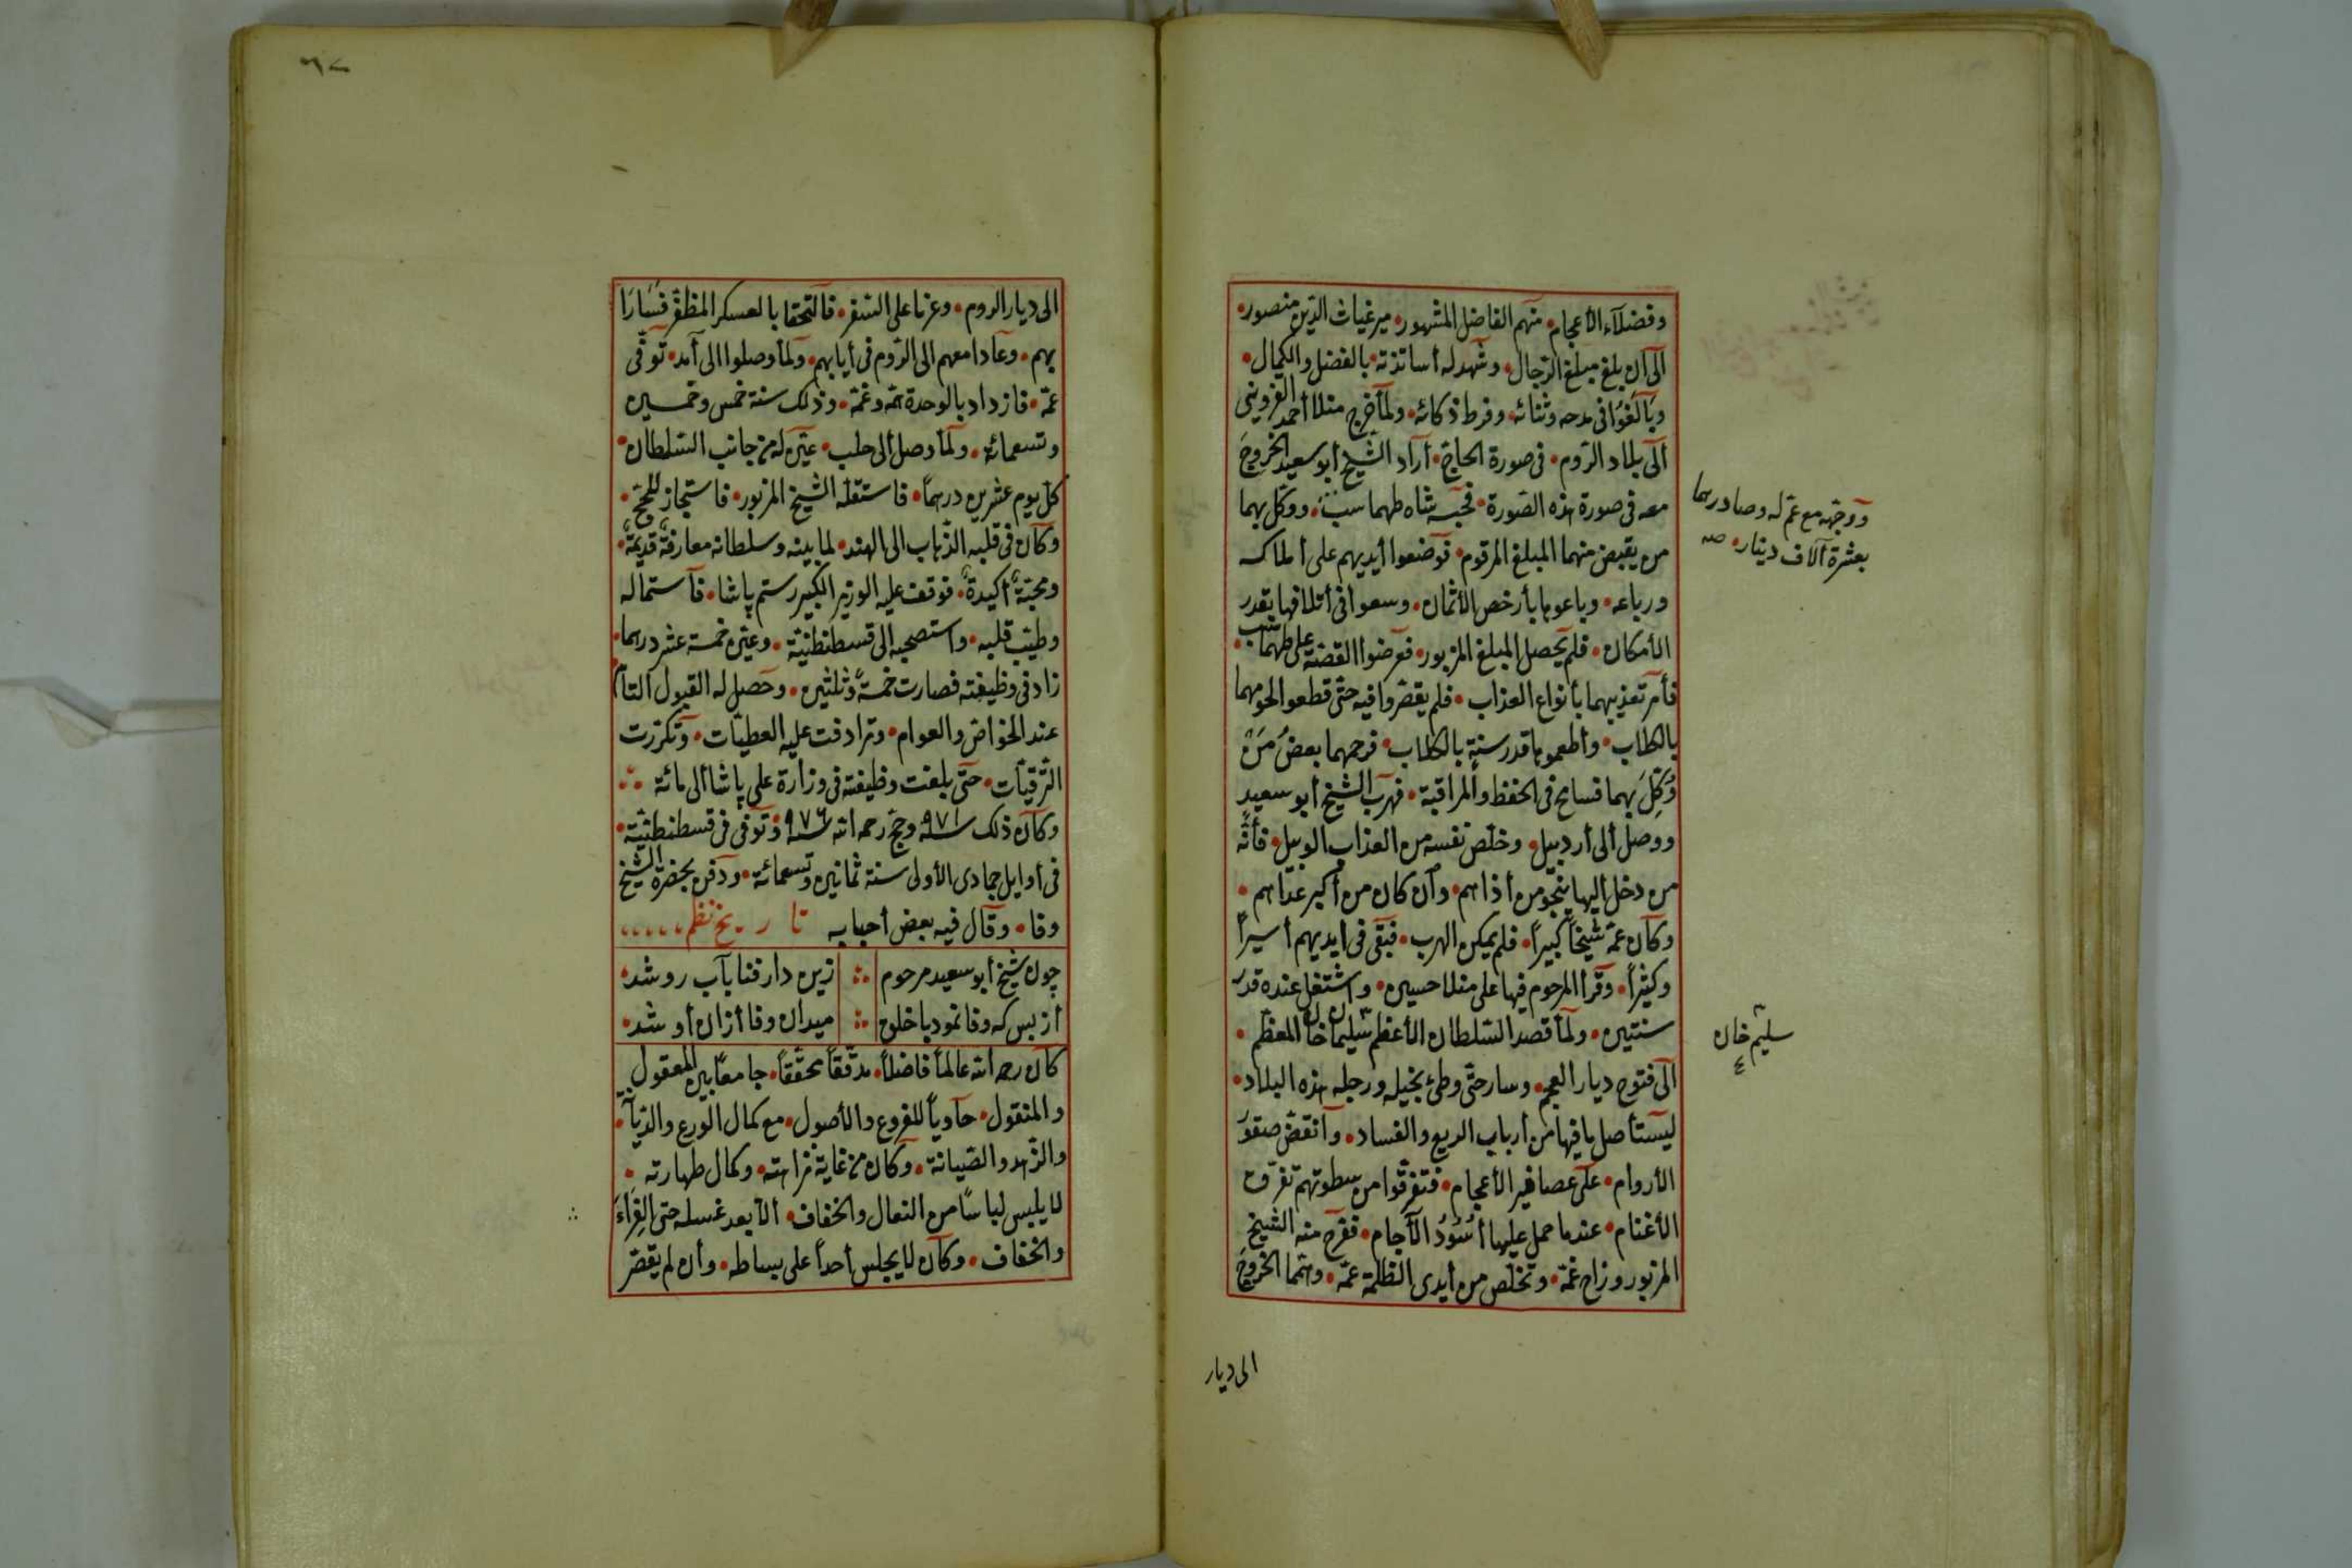 وفضلاء الأعجام منهم الفاضل المشهور مير غياث الدين منصور
الى ان بلغ مبلغ الرجال وشهد له أساتذته بالفضل والكمال
وبالغوا فى مدحه وثنائه وفرط ذكائه ولما خرج منلا أحمد القزوينى
الى بلاد الروم فى صورة الحاج أراد الشيخ أبو سعيد الخروج
معه فى صورة هذه الصورة فحبسه شاه طهماسب ووكل بهما
من يقبض منهما المبلغ المرقوم فوضعوا أيديهم على أملاكه
ورباعه وباعوها بأرخص الأثمان وسعوا فى أتلافها بقدر
الأمكان فلم يحصل المبلغ المزبور فعرضوا القضية على طهماسب
فأمر تعذيبهما بأنواع العذاب فلم يقصروا فيه حتى قطعوا لحومهما
بالكلاب وأطعموها قدر سنة بالكلاب فرحمهما بعض من
وكل بهما فسامح فى الحفظ والمراقبة فهرب الشيخ أبو سعيد
ووصل ألى أردبيل وخلص نفسه من العذاب الوبيل فأنه
من دخل أليها ينجو من أذاهم وأن كان من أكبر عداهم
وكان عمه شيخا كبيرا فلم يمكن الهرب فبقى فى أيديهم أسيرا
وكثيرا وقرأ المرحوم فيها على منلا حسين واشتغل عنده قدر
سنتين ولما قصد السلطان الأعظم سليمان خان المعظم
الى فتوح ديار العجم وسار حتى وطئ بخيله ورجله هذه البلاد
ليستأصل ما فيها من أرباب الريع والفساد وأنقض صقور
الأروام على عصافير الأعجام فتفرقوا من سطوتهم تفرق
الأغنام عندما حمل عليها أسود الآجام ففرح منه الشيخ
المزبور وزاح غمه وتخلص من أيدى الظلمة عمه وهما الخروج
ووجهه مع عم له وصادرهما
بعشرة آلاف دينار صه
سليم خان
الى ديار
٦٧
الى ديار الروم وعزما على السفر فالتحقا بالعسكر المظفر فسارا
بهم وعادا معهم الى الروم فى أيابهم ولما وصلوا الى آمد توفى
عمه فازداد بالوحدة همه وغمه وذلك سنة خمس وخمسين
وتسعمائة ولما وصل ألى حلب عين له من جانب السلطان
كل يوم عشرين درهما فاستقله الشيخ المزبور فاستجاز للحج
وكان فى قلبه الذهاب الى الهند لما بينه وسلطانه معارفة قديمة
ومحبة أكيدة فوقف عليه الوزير الكبير رستم پاشا فاستماله
وطيب قلبه واستصحبه الى قسطنطنية وعين خمسة عشر درهما
زاد فى وظيفته فصارت خمسة وثلثين وحصل له القبول التام
عند الخواص والعوام وترادفت عليه العطيات وتكررت
الترقيات حتى بلغت وظيفته فى وزارة على پاشا ألى مائة
وكان ذلك سنة ٩٧١ وحج رحمه الله سنة ٩٧٦ وتوفى فى قسطنطنية
فى أوايل جمادى الأولى سنة ثمانين وتسعمائة ودفن بحضرة الشيخ
وفا وقال فيه بعض أحبابه تاريخ نظم
چون شيخ أبو سعيد مرحوم زين دار فنا بآب رو شد
أز بس كه وفا نمود با خلق ميدان وفا أزان أو شد
كان رحمه الله عالما فاضلا مدققا محققا جامعا بين المعقول
والمنقول حاويا للفروع والأصول مع كمال الورع والديانة
والزهد والصيانة وكان من غاية نزاهته وكمال طهارته
لا يلبس لباسا من النعال والخفاف ألا بعد غسله حتى الفراء
والخفاف وكان لا يجلس أحدا على بساطه وأن لم يقصر